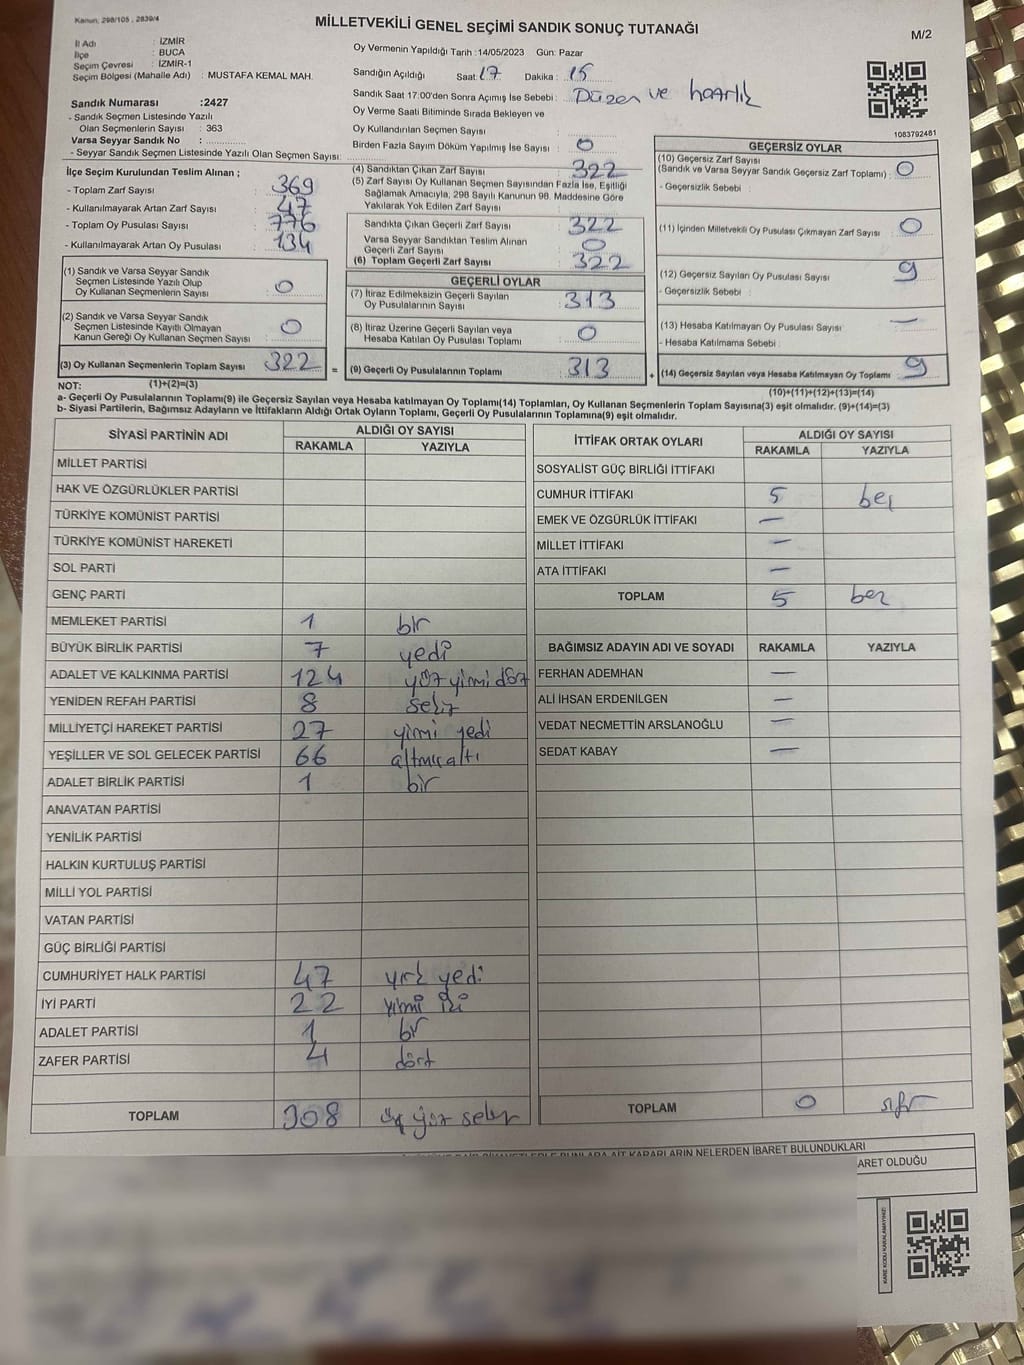 Kanun: 298/105 , 2839/4
MİLLETVEKİLİ GENEL SEÇİMİ SANDIK SONUÇ TUTANAĞI
M/2
İl Adı : İZMİR
İlçe : BUCA
Seçim Çevresi : İZMİR-1
Seçim Bölgesi (Mahalle Adı) : MUSTAFA KEMAL MAH.
Oy Vermenin Yapıldığı Tarih :14/05/2023 Gün: Pazar
Sandığın Açıldığı Saat: 17 Dakika : 15
Sandık Saat 17:00'den Sonra Açılmış İse Sebebi : Düzen ve hazırlık
Oy Verme Saati Bitiminde Sırada Bekleyen ve
Oy Kullandırılan Seçmen Sayısı :
Birden Fazla Sayım Döküm Yapılmış İse Sayısı : 0
Sandık Numarası :2427
- Sandık Seçmen Listesinde Yazılı
Olan Seçmenlerin Sayısı : 363
Varsa Seyyar Sandık No :
- Seyyar Sandık Seçmen Listesinde Yazılı Olan Seçmen Sayısı:
1083792481
İlçe Seçim Kurulundan Teslim Alınan ;
- Toplam Zarf Sayısı : 369
- Kullanılmayarak Artan Zarf Sayısı : 47
- Toplam Oy Pusulası Sayısı : 776
- Kullanılmayarak Artan Oy Pusulası : 134
(1) Sandık ve Varsa Seyyar Sandık
Seçmen Listesinde Yazılı Olup
Oy Kullanan Seçmenlerin Sayısı : 0
(2) Sandık ve Varsa Seyyar Sandık
Seçmen Listesinde Kayıtlı Olmayan
Kanun Gereği Oy Kullanan Seçmen Sayısı : 0
(3) Oy Kullanan Seçmenlerin Toplam Sayısı 322 =
(4) Sandıktan Çıkan Zarf Sayısı : 322
(5) Zarf Sayısı Oy Kullanan Seçmen Sayısından Fazla İse, Eşitliği
Sağlamak Amacıyla, 298 Sayılı Kanunun 98. Maddesine Göre
Yakılarak Yok Edilen Zarf Sayısı :
Sandıkta Çıkan Geçerli Zarf Sayısı : 322
Varsa Seyyar Sandıktan Teslim Alınan
Geçerli Zarf Sayısı : 0
(6) Toplam Geçerli Zarf Sayısı : 322
GEÇERLİ OYLAR
(7) İtiraz Edilmeksizin Geçerli Sayılan
Oy Pusulalarının Sayısı : 313
(8) İtiraz Üzerine Geçerli Sayılan veya
Hesaba Katılan Oy Pusulası Toplamı : 0
(9) Geçerli Oy Pusulalarının Toplamı : 313 +
GEÇERSİZ OYLAR
(10) Geçersiz Zarf Sayısı
(Sandık ve Varsa Seyyar Sandık Geçersiz Zarf Toplamı) : 0
- Geçersizlik Sebebi :
(11) İçinden Milletvekili Oy Pusulası Çıkmayan Zarf Sayısı : 0
(12) Geçersiz Sayılan Oy Pusulası Sayısı : 9
- Geçersizlik Sebebi :
(13) Hesaba Katılmayan Oy Pusulası Sayısı : —
- Hesaba Katılmama Sebebi :
(14) Geçersiz Sayılan veya Hesaba Katılmayan Oy Toplamı : 9
NOT: (1)+(2)=(3) (10)+(11)+(12)+(13)=(14)
a- Geçerli Oy Pusulalarının Toplamı(9) ile Geçersiz Sayılan veya Hesaba katılmayan Oy Toplamı(14) Toplamları, Oy Kullanan Seçmenlerin Toplam Sayısına(3) eşit olmalıdır. (9)+(14)=(3)
b- Siyasi Partilerin, Bağımsız Adayların ve İttifakların Aldığı Ortak Oyların Toplamı, Geçerli Oy Pusulalarının Toplamına(9) eşit olmalıdır.
SİYASİ PARTİNİN ADI ALDIĞI OY SAYISI
RAKAMLA YAZIYLA
MİLLET PARTİSİ
HAK VE ÖZGÜRLÜKLER PARTİSİ
TÜRKİYE KOMÜNİST PARTİSİ
TÜRKİYE KOMÜNİST HAREKETİ
SOL PARTİ
GENÇ PARTİ
MEMLEKET PARTİSİ 1 bir
BÜYÜK BİRLİK PARTİSİ 7 yedi
ADALET VE KALKINMA PARTİSİ 124 yüz yirmi dört
YENİDEN REFAH PARTİSİ 8 sekiz
MİLLİYETÇİ HAREKET PARTİSİ 27 yirmi yedi
YEŞİLLER VE SOL GELECEK PARTİSİ 66 altmış altı
ADALET BİRLİK PARTİSİ 1 bir
ANAVATAN PARTİSİ
YENİLİK PARTİSİ
HALKIN KURTULUŞ PARTİSİ
MİLLİ YOL PARTİSİ
VATAN PARTİSİ
GÜÇ BİRLİĞİ PARTİSİ
CUMHURİYET HALK PARTİSİ 47 kırk yedi
İYİ PARTİ 22 yirmi iki
ADALET PARTİSİ 1 bir
ZAFER PARTİSİ 4 dört
TOPLAM 308 üç yüz sekiz
İTTİFAK ORTAK OYLARI ALDIĞI OY SAYISI
RAKAMLA YAZIYLA
SOSYALİST GÜÇ BİRLİĞİ İTTİFAKI
CUMHUR İTTİFAKI 5 beş
EMEK VE ÖZGÜRLÜK İTTİFAKI —
MİLLET İTTİFAKI —
ATA İTTİFAKI —
TOPLAM 5 beş
BAĞIMSIZ ADAYIN ADI VE SOYADI RAKAMLA YAZIYLA
FERHAN ADEMHAN —
ALİ İHSAN ERDENİLGEN —
VEDAT NECMETTİN ARSLANOĞLU —
SEDAT KABAY —
TOPLAM 0 sıfır
KARARLARIN NELERDEN İBARET BULUNDUKLARI
ARET OLDUĞU
KARE KODU KARALAMAYINIZ!